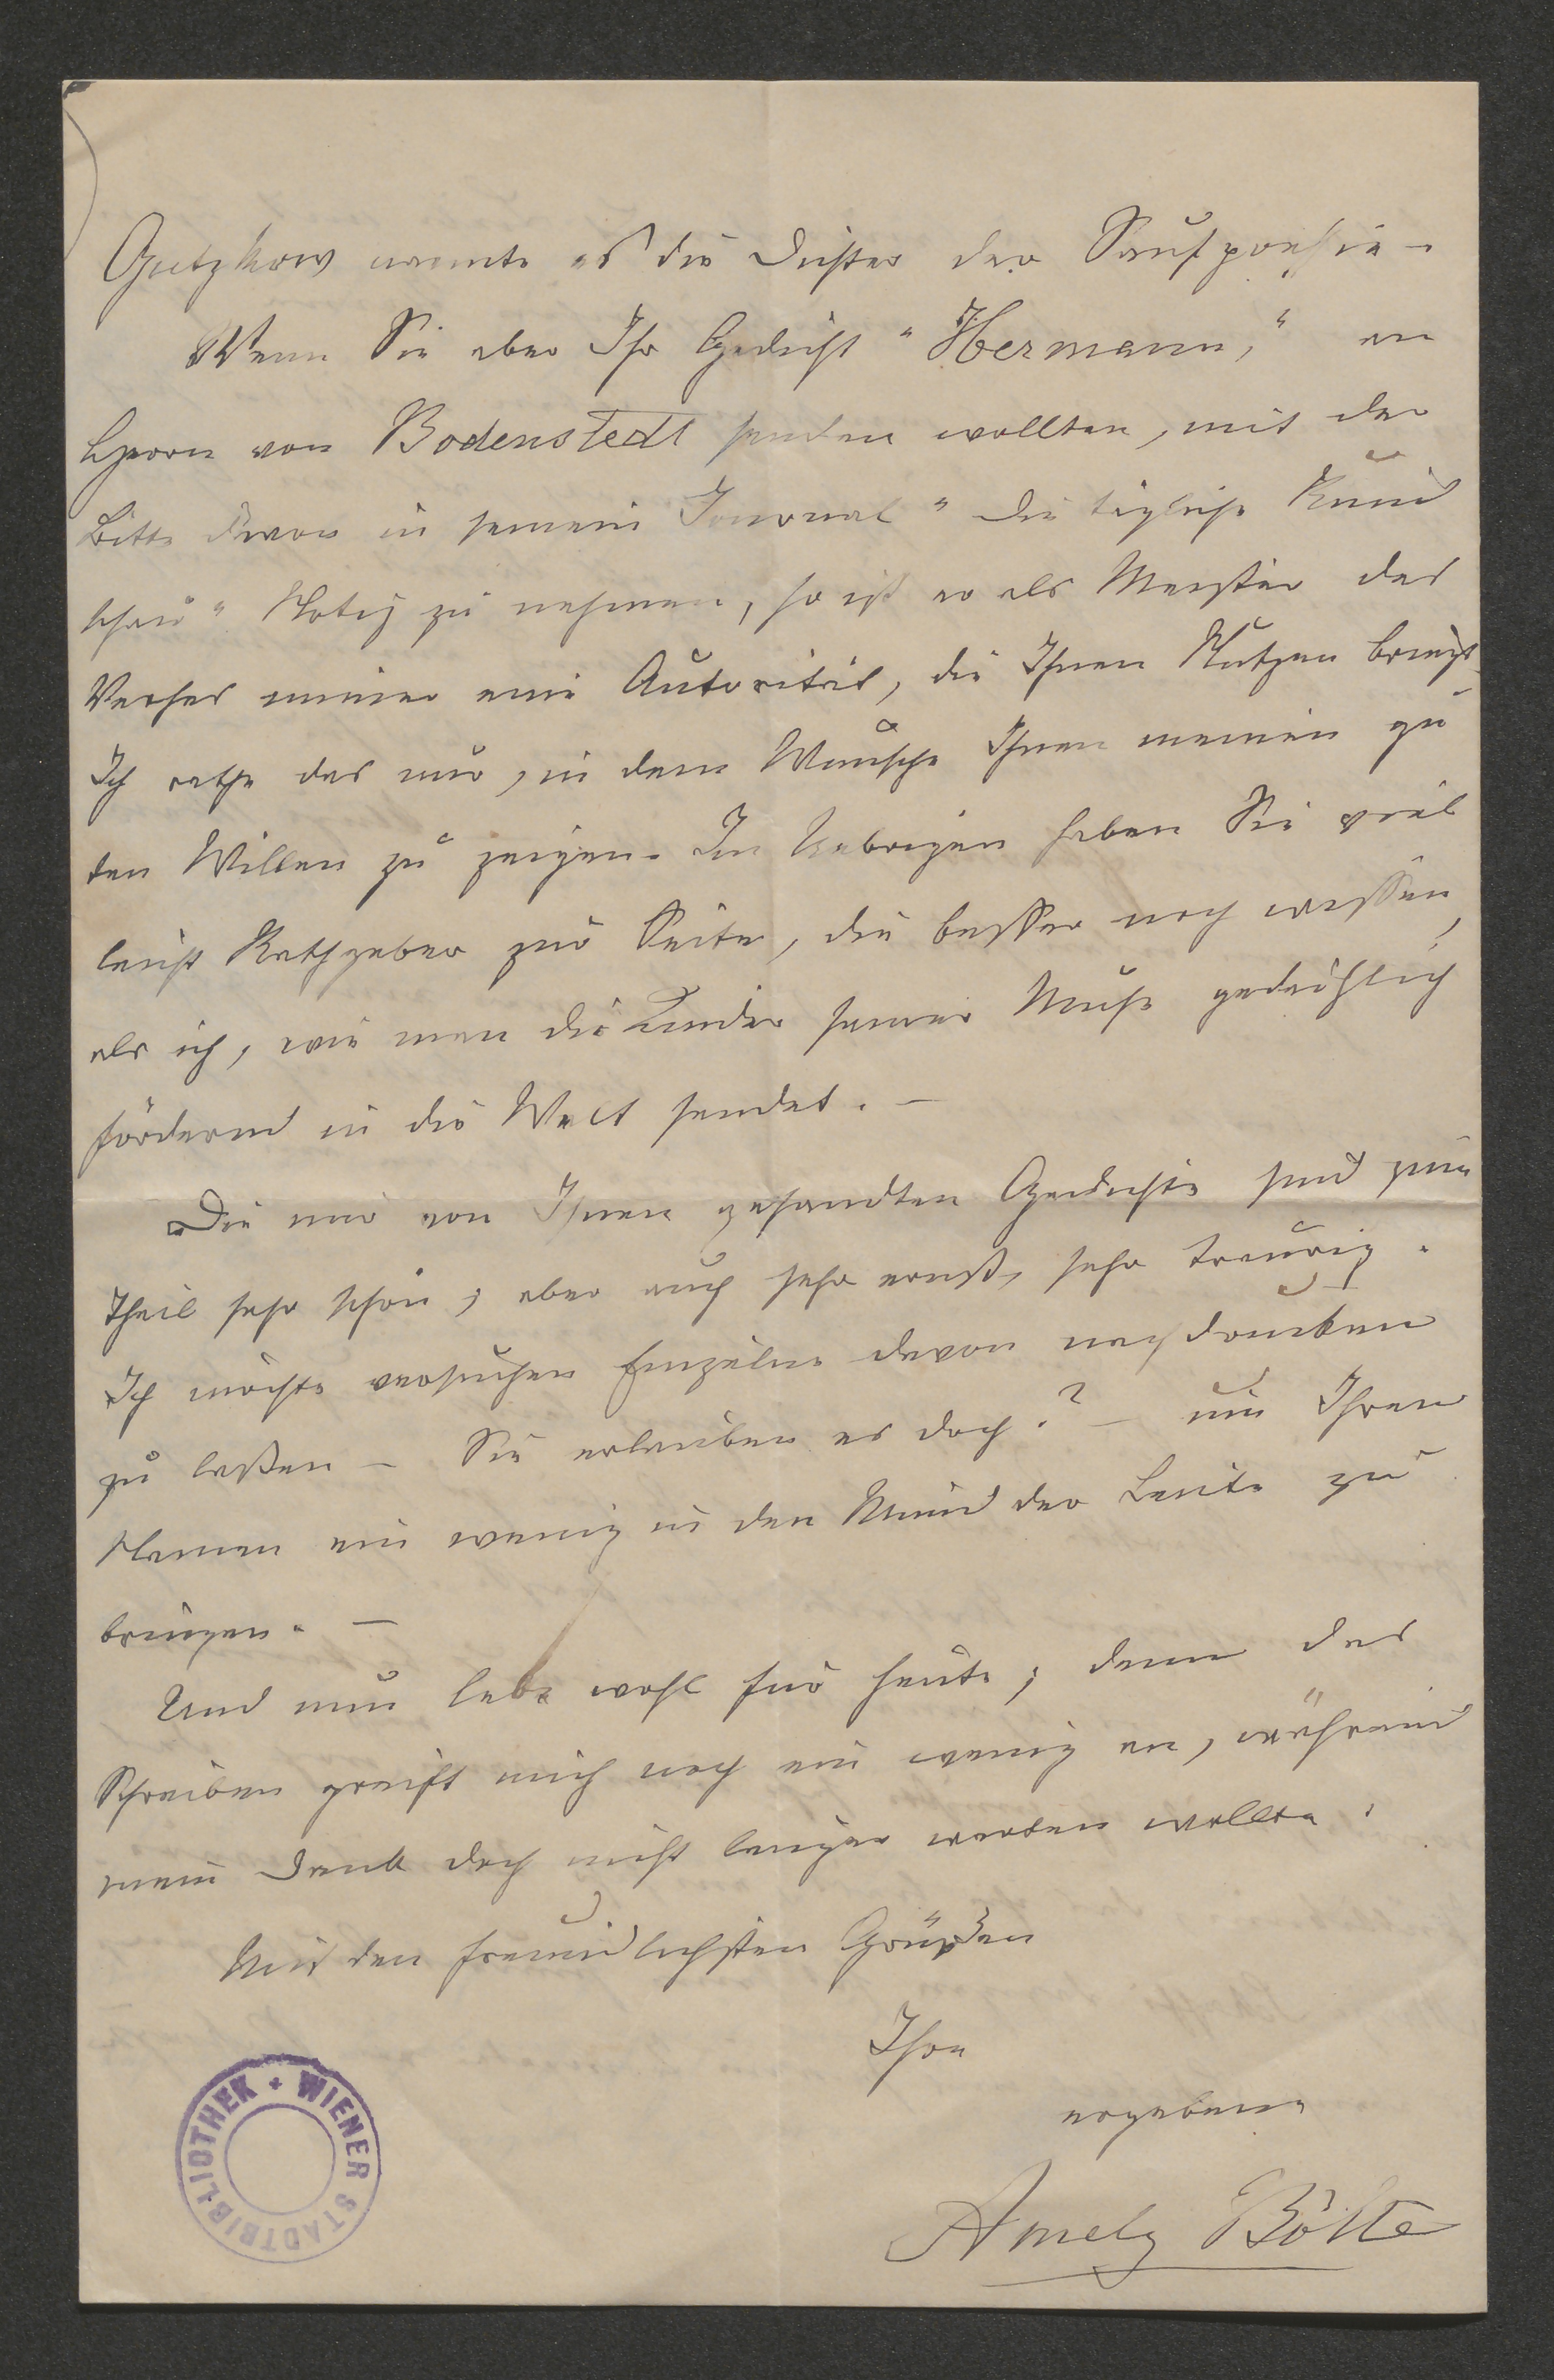 Gutzkow nannte es die Dichter der Saufpoesie –
Wenn Sie aber Ihr Gedicht "Hermann," an
Herrn von Bodenstedt senden wollten, mit der
Bitte davon in seinem Journal "die tägliche Rund
schau" Notiz zu nehmen, so ist er als Meister des
Verses immer eine Autorität, die Ihnen Nutzen bringt.
Ich rathe das nur, in dem Wunsche Ihnen meinen gu
ten Willen zu zeigen. Im Uebrigen haben Sie viel
leicht Rathgeber zur Seite, die besser noch wissen,
als ich, wie man die Kinder seiner Muse gedeihlich
fördernd in die Welt sendet. –
Die mir von Ihnen gesandten Gedichte sind zum
Theil sehr schön, aber auch sehr ernst, sehr traurig.
Ich möchte versuchen Einzelne davon nachdrucken
zu laßen – Sie erlauben es doch? – um Ihren
Namen ein wenig in den Mund der Leute zu
bringen. –
Und nun lebe wohl für heute; denn das
Schreiben greift mich noch ein wenig an, während
mein Dank doch nicht länger warten wollte.
Mit den freundlichsten Grüßen
Ihre
ergebene
Amely Bölte
WIENER STADTBIBLIOTHEK